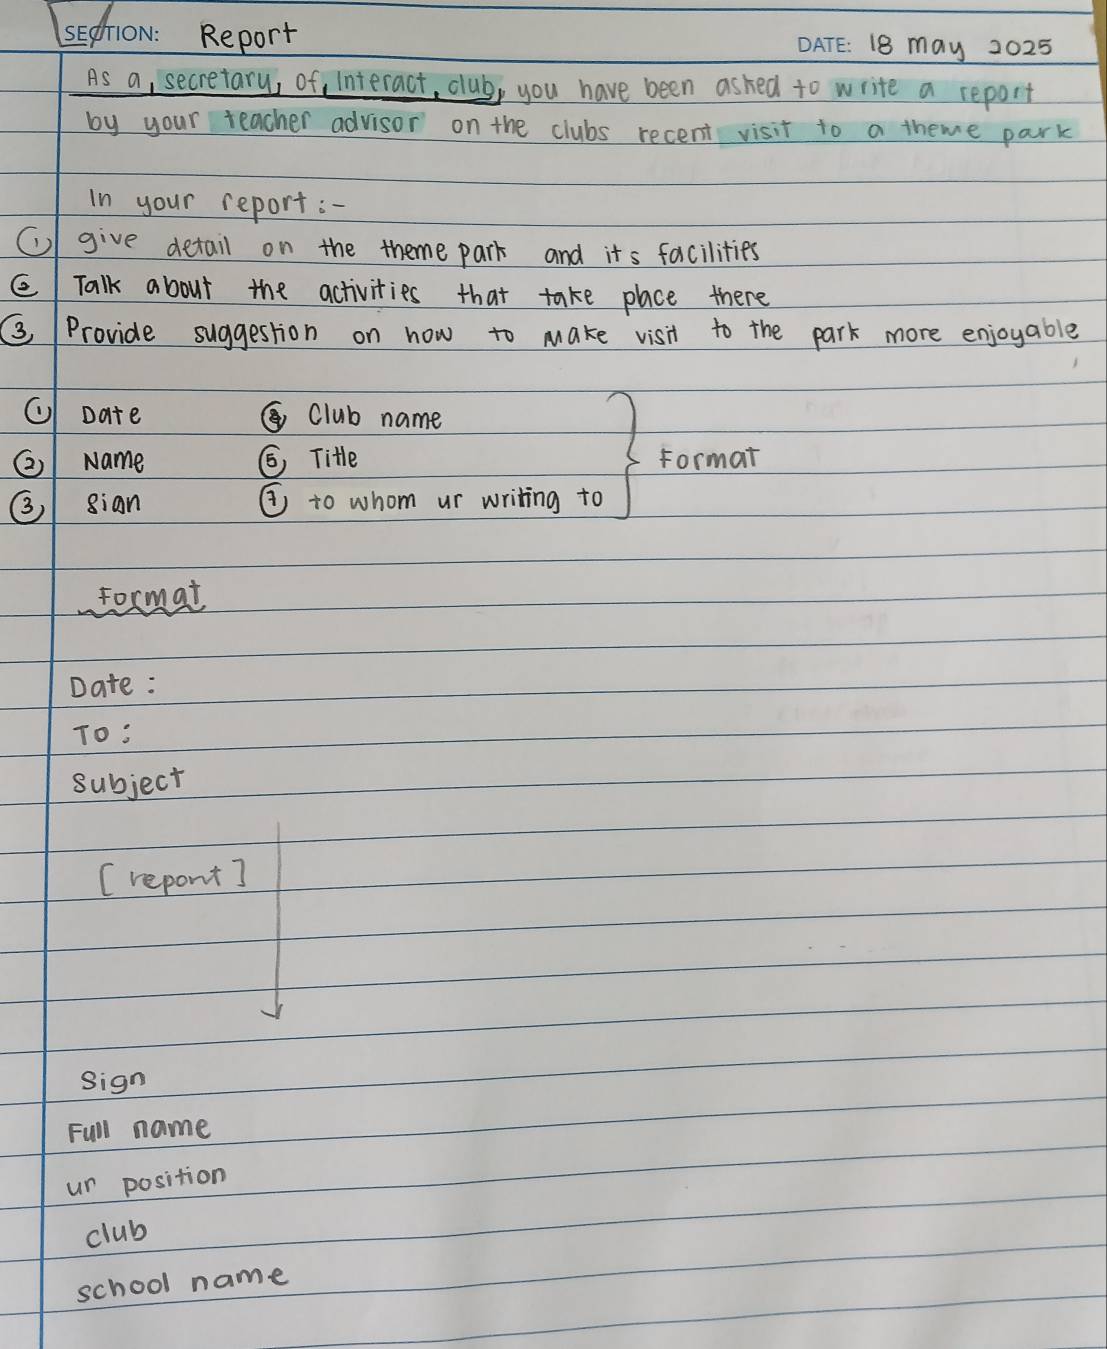 SECTION: Report
DATE: 18 may 2025
As a, secretary, of, Interact, club, you have been asked to write a report
by your teacher advisor on the clubs recent visit to a theme park
In your report :-
① give detail on the theme park and it's facilities
② Talk about the activities that take place there
③ Provide suggestion on how to make visit to the park more enjoyable
① Date ④ Club name
② Name ⑤ Title } Format
③ Sign ⑦ to whom ur writing to
Format
Date :
To :
Subject
[report]
Sign
Full name
ur position
club
school name